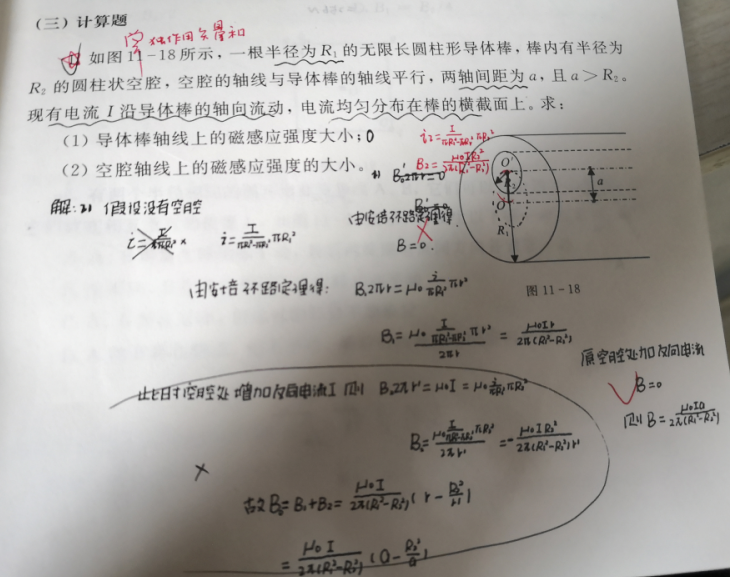 (三) 计算题
独作用矢量和
如图11-18所示，一根半径为R₁的无限长圆柱形导体棒，棒内有半径为
R₂的圆柱状空腔，空腔的轴线与导体棒的轴线平行，两轴间距为a，且a＞R₂。
现有电流I沿导体棒的轴向流动，电流均匀分布在棒的横截面上。求：
(1) 导体棒轴线上的磁感应强度大小；0
(2) 空腔轴线上的磁感应强度的大小。
i₂=I/(πR₁²-πR₂²)·πR₂²
B₂=μ₀IR₂²/2π(R₁²-R₂²)
O′
O
R₁
a
图 11-18
解: 2) 假设没有空腔
由安培环路定理得
B=0.
i=I/(πR₁²-πR₂²)·πR₁²
由安培环路定理得: B₁2πr=μ₀ i/(πR₁²) πr²
B₁=μ₀ I/(πR₁²-πR₂²) πr² / 2πr = μ₀Ir/2π(R₁²-R₂²)
原空腔处加反向电流
B=0
则B=μ₀Ia/2π(R₁²-R₂²)
此时空腔处增加反向电流I 则 B₂2πr′=μ₀I=μ₀
=-μ₀IR₂²/2π(R₁²-R₂²)r′
故B=B₁+B₂=μ₀I/2π(R₁²-R₂²) (r-R₂²/r′)
=μ₀I/2π(R₁²-R₂²) (a-R₂²/a)